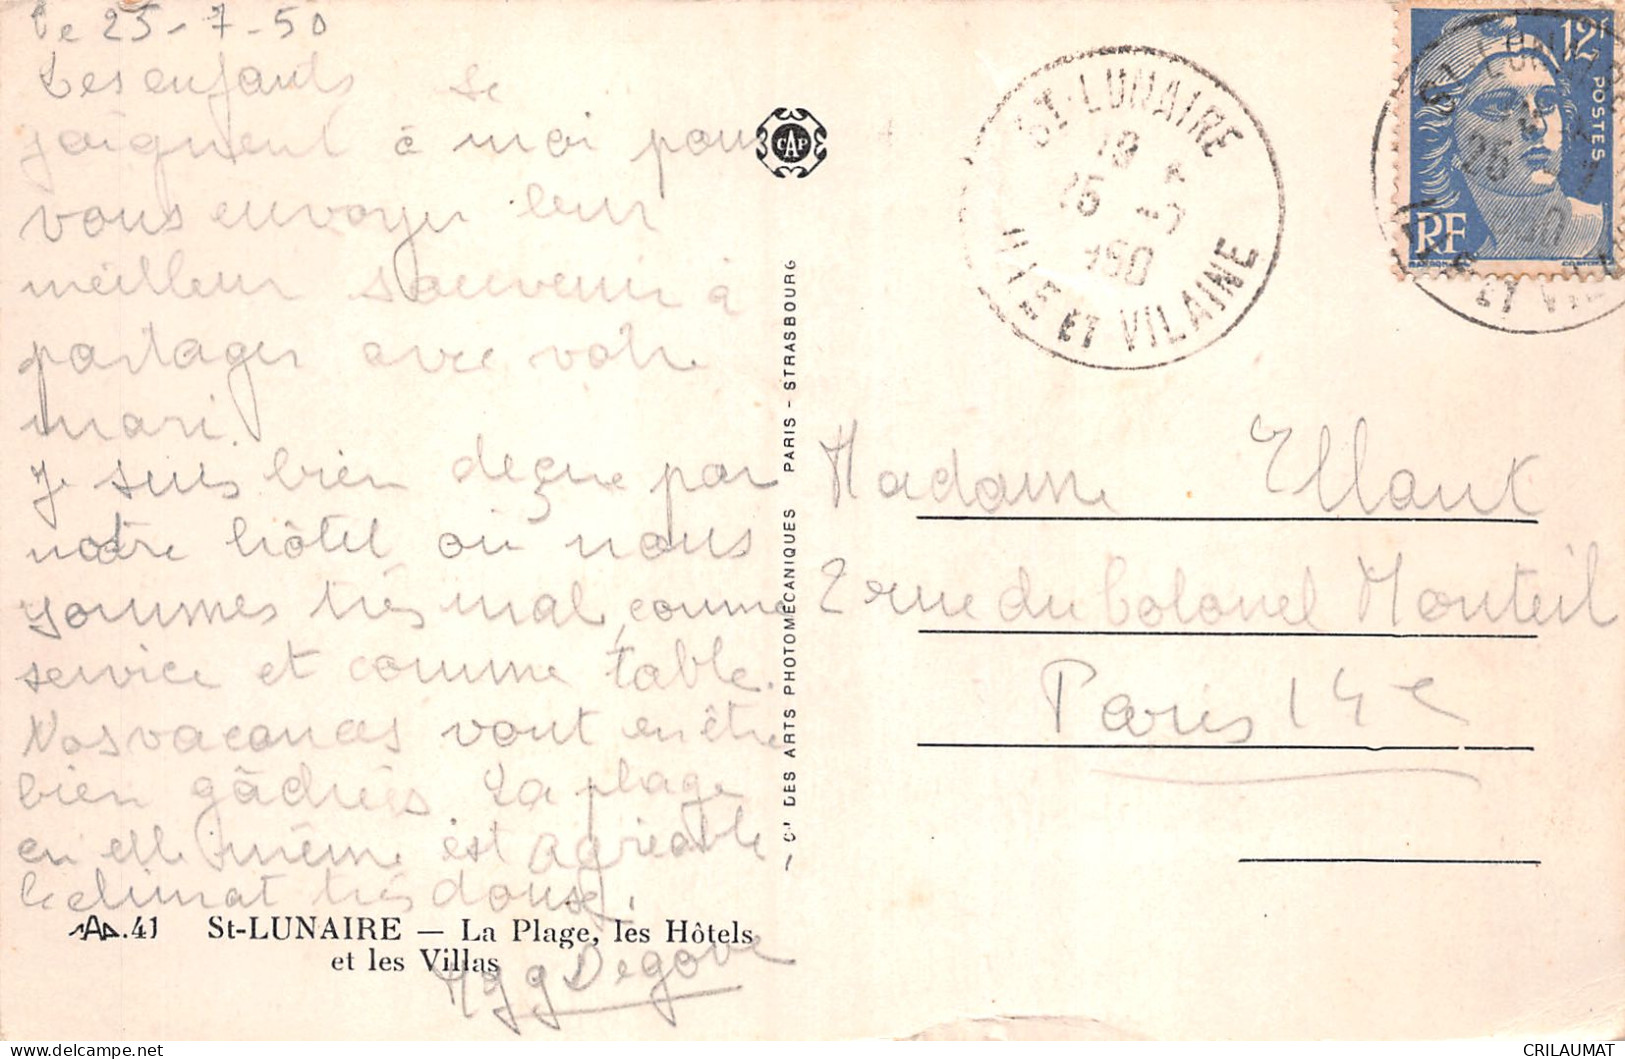 le 25-7-50
Les enfants se
joignent à moi pour
vous envoyer leur
meilleur souvenir à
partager avec votre
mari.
Je suis bien deçue par
notre hôtel où nous
sommes très mal, comme
service et comme table.
Nos vacances vont en être
bien gâchées La plage
en elle même est agréable
le climat très doux.
Degove
AD.41 St-LUNAIRE — La Plage, les Hôtels
et les Villas
CAP
Cie DES ARTS PHOTOMÉCANIQUES PARIS - STRASBOURG
ST-LUNAIRE
18
25 -7
1950
ILLE ET VILAINE
12F
POSTES
RF
Madame
2 rue du Colonel Monteil
Paris 14e
CRILAUMAT